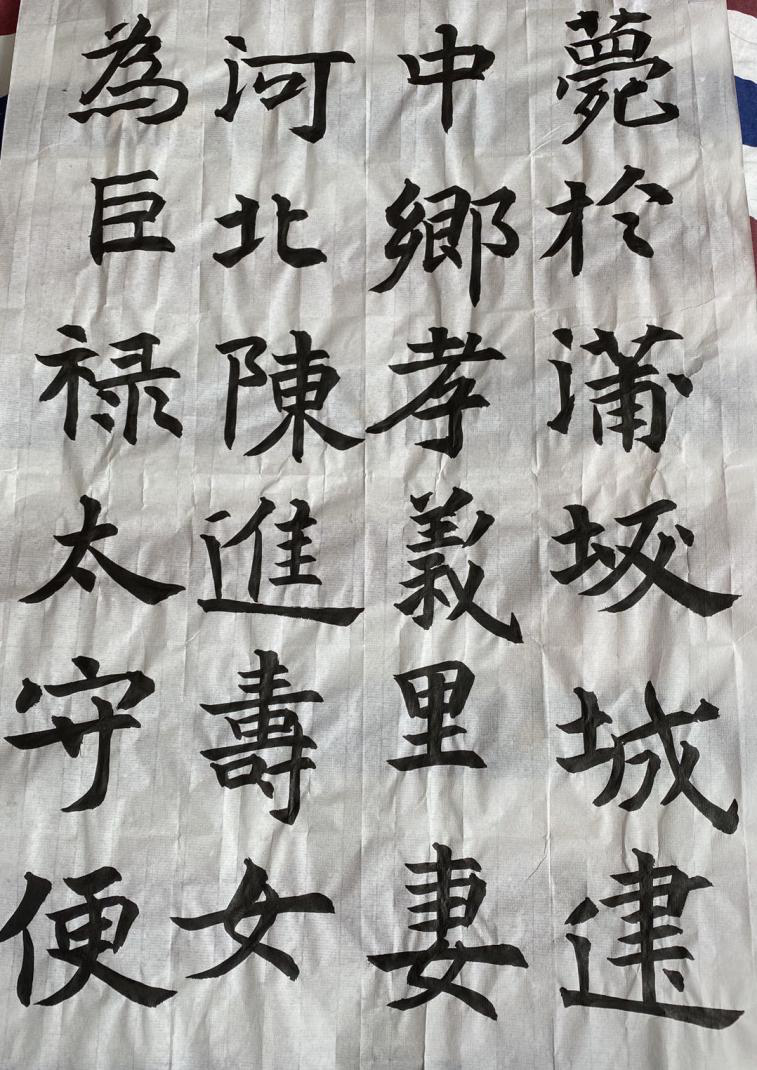 薨於蒲坂城建
中鄉孝義里妻
河北陳進壽女
為臣祿太守便